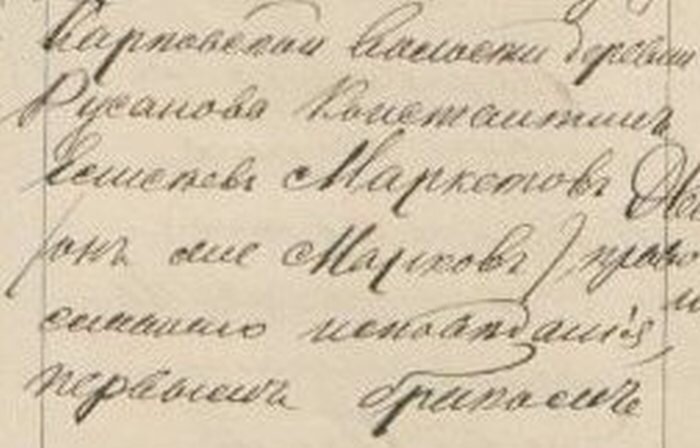 Карповской волости деревни
Русанова Константинъ
Маркеловъ
(онъ же Марковъ), право
славнаго исповѣданія,
первымъ бракомъ